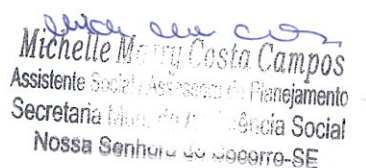 Michelle Marry Costa Campos
Assistente Social/Assessora de Planejamento
Secretaria Social
Nossa Senhora do Socorro-SE